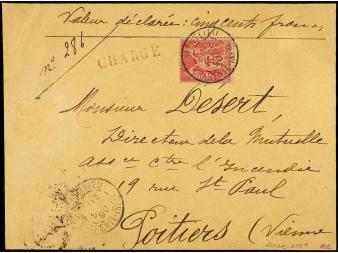 Valeur déclarée: cinq cents francs
n° 286
CHARGÉ
Monsieur Desert,
Directeur de la Mutuelle
ass ce ctre l'Incendie
19 rue St Paul
Poitiers (Vienne